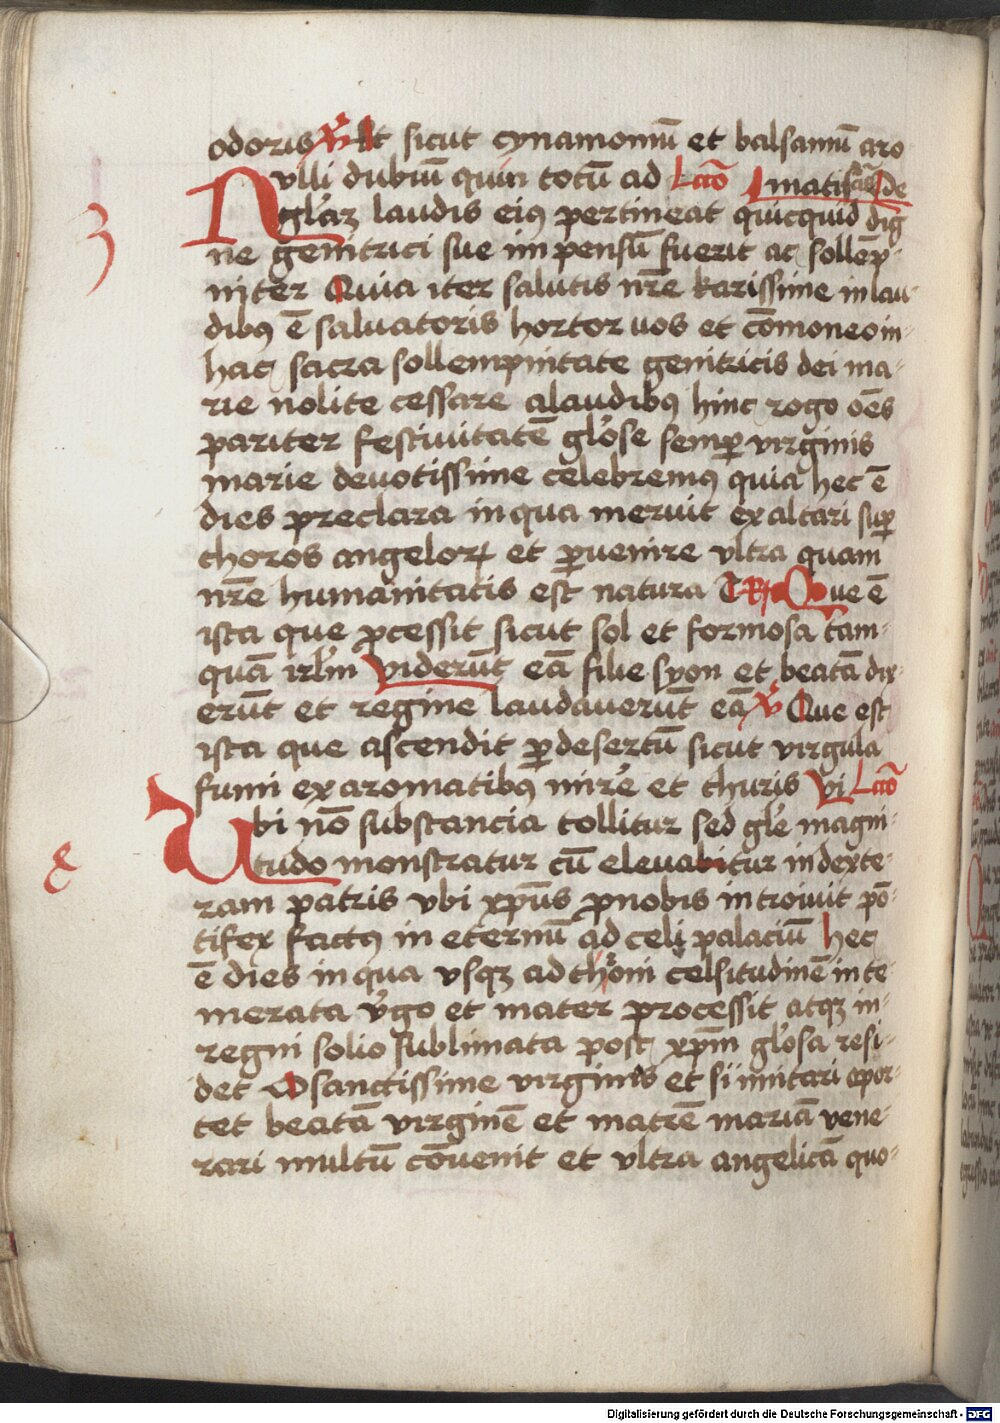 odoris v̄ Et sicut cynamomū et balsamū aro
Nvlli dubiū quin totū ad Lcco matisās De
gl'aȝ laudis eiꝰ pertineat quicquid dig
3
ne genitrici sue impensū fuerit ac sollēp-
niter Quia iter salutis nr̄e karissime in lau-
dibꝰ ē saluatoris hortor uos et cōmoneo in-
hac sacra sollempnitate genitricis dei ma-
rie nolite cessare alaudibꝰ hinc rogo oēs
pariter festiuitatē gl'ose semꝑ virginis
marie deuotissime celebremꝰ quia hec ē
dies preclara inqua meruit exaltari suꝑ
choros angeloꝝ et ꝑuenire vltra quam
nr̄e humanitatis est natura T R̷ Que ē
ista que ꝓcessit sicut sol et formosa tam-
quā irl'm viderūt eā filie syon et beatā dix-
erūt et regine laudauerūt eā v̄ Que est
ista que ascendit ꝑdesertū sicut virgula
fumi exaromatibꝰ mirre et thuris vi Lcco
Vbi nō substancia tollitur sed gl'e magni-
tudo monstratur cū eleuabitur indexte-
ram patris vbi xp̄us ꝓnobis introiuit pō-
tifex factꝰ in eternū ad celi palaciū hec
ē dies inqua vsqȝ adthroni celsitudinē inte-
merata v'go et mater processit atqȝ in-
regni solio sublimata post xp̄m gl'osa resi-
det O sanctissime virginis et si imitari opor-
tet beatā virginē et matrē mariā vene-
rari multū cōuenit et vltra angelicā quo-
Digitalisierung gefördert durch die Deutsche Forschungsgemeinschaft - DFG